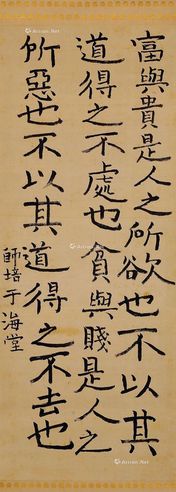 富與貴是人之所欲也不以其
道得之不處也貧與賤是人之
所惡也不以其道得之不去也
師培于海堂